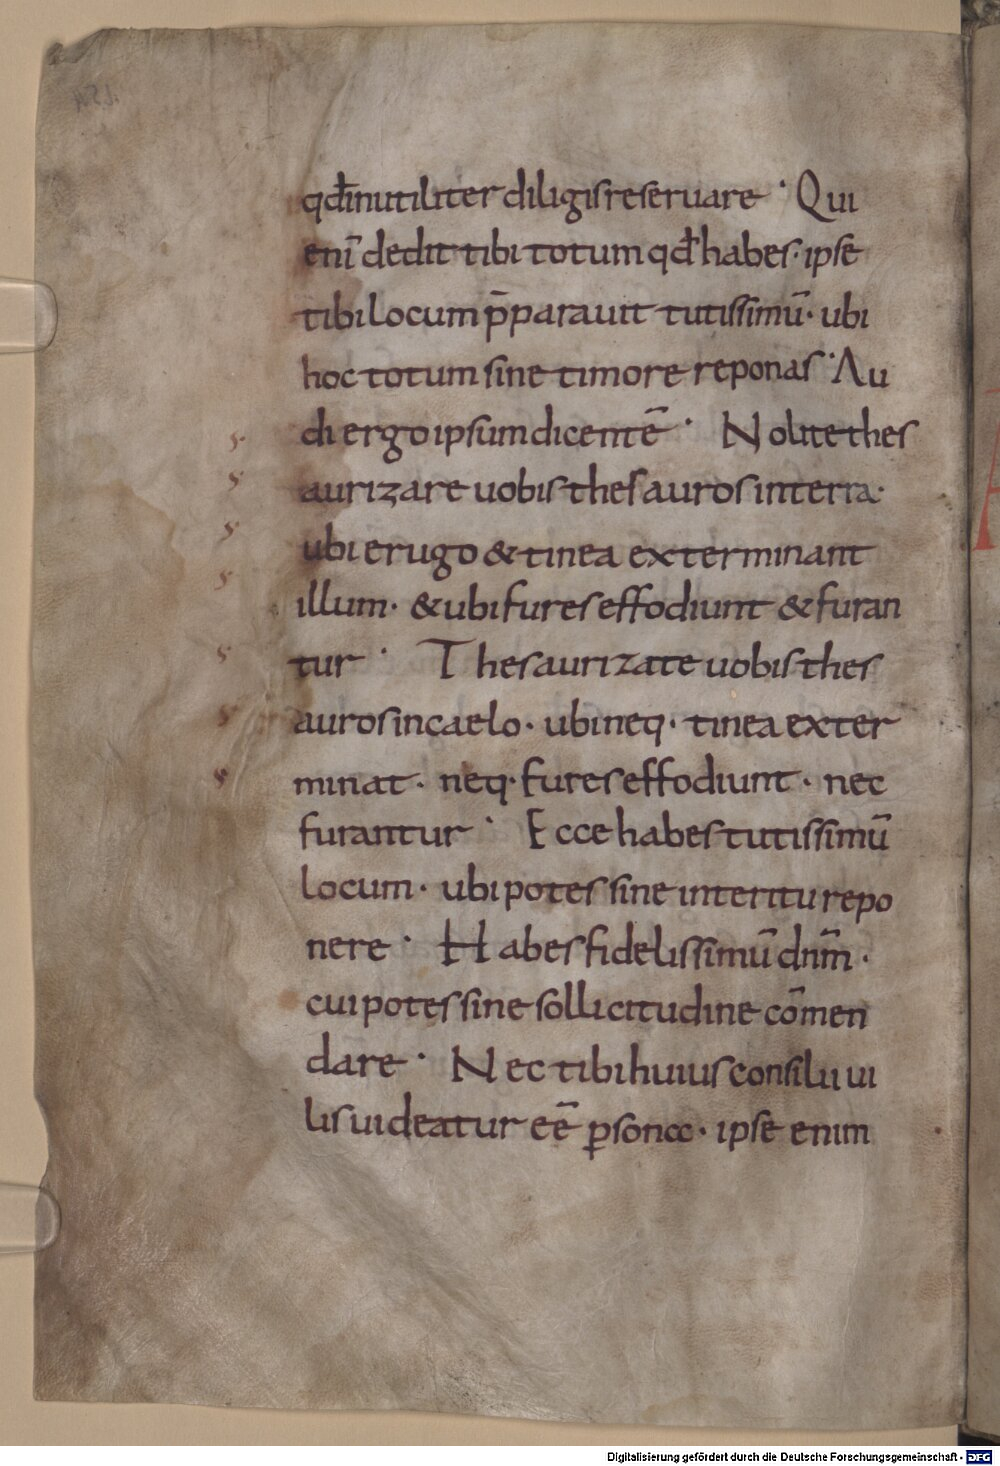 qđ inutiliter diligis reseruare · Qui
enī dedit tibi totum qđ habes · ipse
tibi locum p̄parauit tutissimū · ubi
hoc totum sine timore reponas · Au
di ergo ipsum dicentē · Nolite thes
aurizare uobis thesauros in terra ·
ubi erugo & tinea exterminant
illum · & ubi fures effodiunt & furan
tur · Thesaurizate uobis thes
auros in caelo · ubi neq· tinea exter
minat · neq· fures effodiunt · nec
furantur · Ecce habes tutissimū
locum · ubi potes sine interitu repo
nere · Habes fidelissimū dnm̄ ·
cui potes sine sollicitudine cōmen
dare · Nec tibi huius consilii ui
lis uideatur eē̄ ꝑsona · ipse enim
Digitalisierung gefördert durch die Deutsche Forschungsgemeinschaft - DFG